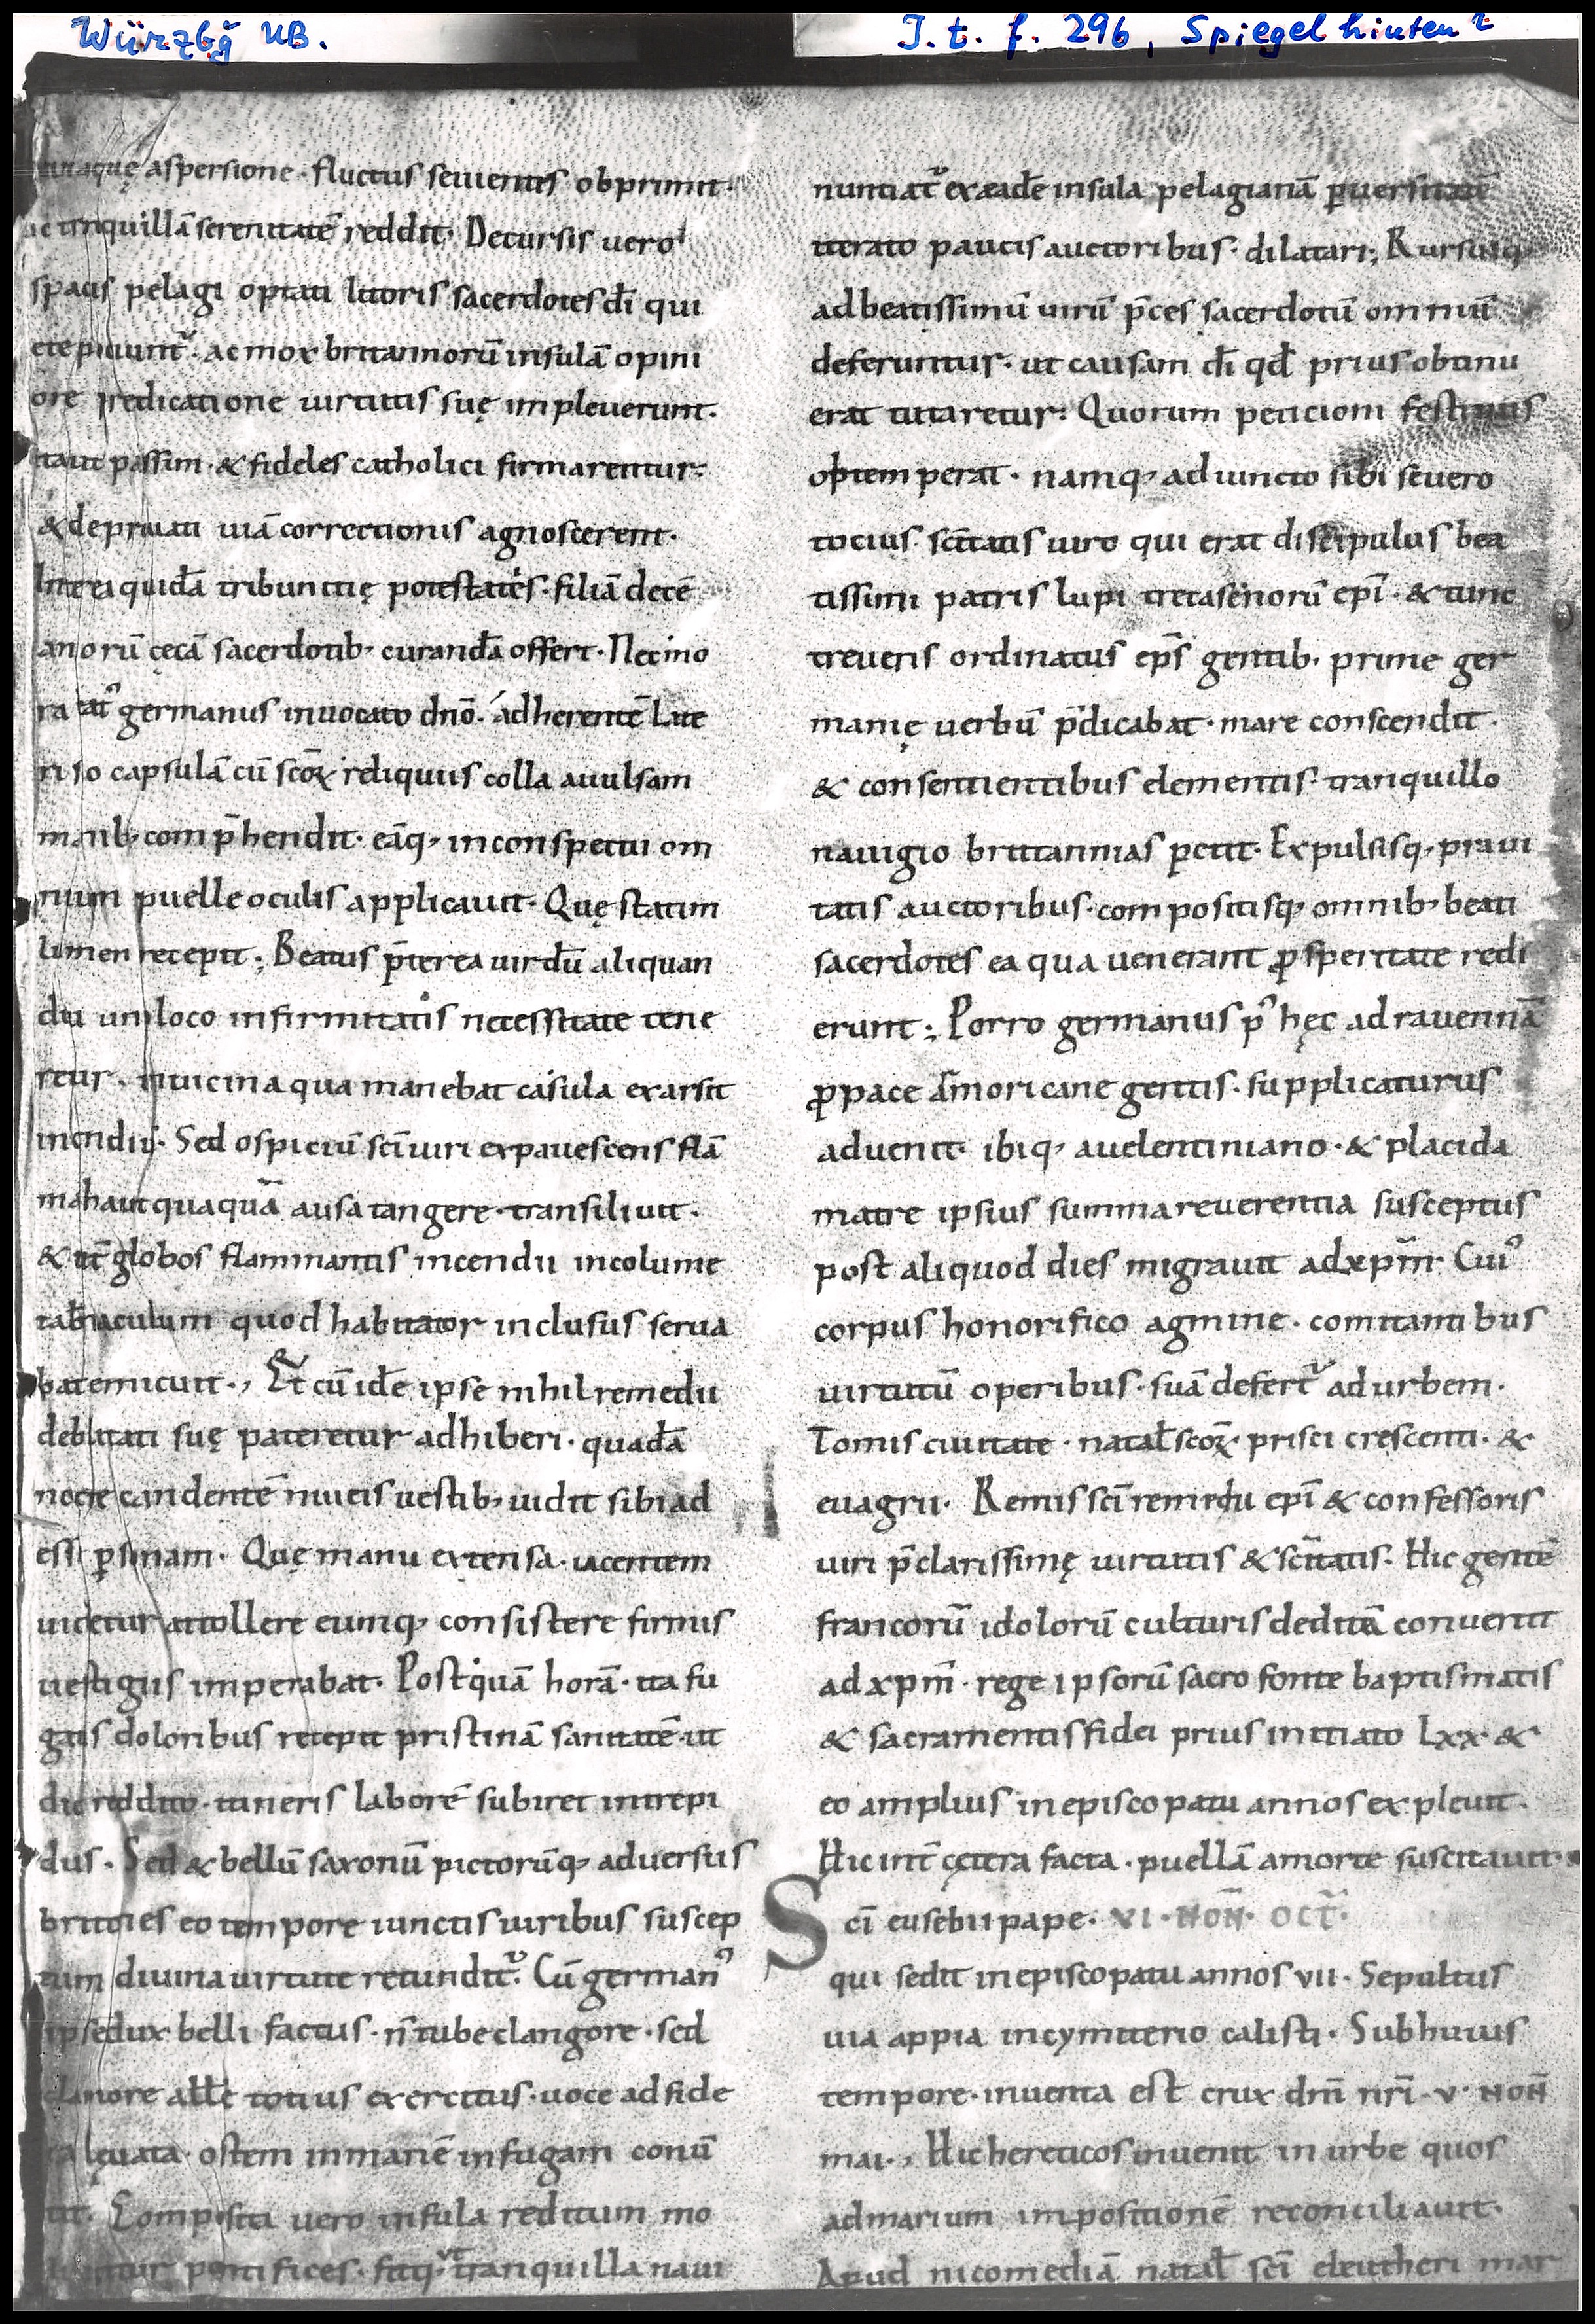 Würzbg UB.
I. t. f. 296, Spiegel hinten r
aquę aspersione · fluctus seuientes obprimit·
ac tnquillā serenitatē reddit· Decursis uero
spacis pelagi optati litoris sacerdotes dī qui
ac mox britannorū insulā opini
one predicatione uirtutis suę impleuerunt·
passim · & fideles catholici firmarentur:
& deprauati uiā correctionis agnoscerent·
Interea quidā tribunitię potestatis · filiā decē
annorū cęcā sacerdotib; curandā offert · Nec mo
ratat᷒ germanus inuocato dnō · adherentē late
ri so capsulā cū scōꝝ reliquiis colla auulsam
manib; cōmp̄hendit · eāq; inconspectu om
nium puelle oculis applicauit · Quę statim
lumen recepit ; Beatus p̄terea uir dū aliquan
diu un loco infirmitatis necessitate tene
retur · inuicina qua manebat casula exarsit
incendiū · Sed ospiciū scī uiri expauescens flā
ma haut quaquā ausa tangere · transiliuit ·
& int̄ globos flammantis incendii incolume
tab̄naculum quod habitator inclusus serua
bat emicuit ·, Et cū idē ipse nihil remedii
debilitati suę pateretur adhiberi · quadā
nocte candentē niueis uestib; uidit sibi ad
esse ꝑsonam · Quę manu extensa · iacentem
uidetur attollere eumq; consistere firmis
uestigiis imperabat · Post quā horā · ita fu
gatis doloribus recepit pristinā sanitatē · ut
die reddito · itineris laborē subiret intrepi
dus · Sed & bellū saxonū pictorūq; aduersus
brittones eo tempore iunctis uiribus suscep
tum diuina uirtute retundit᷑ · Cū german᷒
ipse dux belli factus · n̄ tube clangore · sed
totius exercitus · uoce ad side
ra leuata · ostem inmanē in fugam conū
tit · Composita uero insula reditum mo
pontifices · fitq; ut tranquilla naui
nuntiat᷑ ex eadē insula pelagianā ꝑuersitatē
iterato paucis auctoribus · dilatari ; Rursusq;
ad beatissimū uirū p̄ces sacerdotū omniū
deferuntur · ut causam dī qd̄ prius obtinu
erat tutaretur : Quorum peticioni festinus
obtemperat · namq; adiuncto sibi seuero
tocius sc̄itatis uiro qui erat discipulus bea
tissimi patris lupi trecasenorū epī · & tunc
treueris ordinatus ep̄s gentib; prime ger
manię uerbū p̄dicabat · mare conscendit ·
& consentientibus elementis · tranquillo
nauigio britannias petit · Expulsisq; praui
tatis auctoribus · compositisq; omnib; beati
sacerdotes ea qua uenerant ꝓsperitate redi
erunt ; Porro germanus p᷒ hęc ad rauennā
ꝓ pace armoricane gentis · supplicaturus
aduenit · ibiq; auelentiniano · & placida
matre ipsius summa reuerentia susceptus
post aliquod dies migrauit ad xp̄m · Cui᷒
corpus honorifico agmine · comitantibus
uirtutū operibus · suā defert᷑ ad urbem ·
Tomis ciuitate · natal̄ scōꝝ · prisci crescenti · &
euagrii · Remis scī remedii epī & confessoris
uiri p̄clarissimę uirtutis & sc̄itatis · Hic gentē
francorū idolorū culturis deditā conuertit
ad xp̄m · rege ipsorū sacro fonte baptismatis
& sacramentis fidei prius initiato Lxx &
eo amplius in episcopatu annos expleuit ·
Hic int̄ cętera facta · puellā a morte suscitauit ·
Scī eusebii pape · VI · NON̄ · OCT̄ ·
qui sedit in episcopatu annos vii · Sepultus
uia appia in cymiterio calisti · Sub huius
tempore · inuenta est crux dn̄i nr̄i · v · NON̄
mai ·, Hic hereticos inuenit in urbe quos
ad manum impositionē reconciliauit ·
Apud nicomediā natal̄ scī eleutheri mar